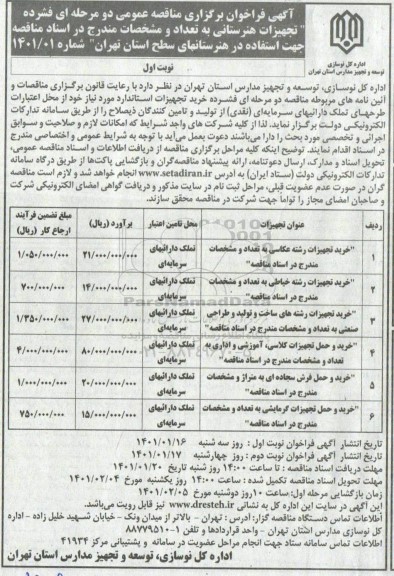 آگهی فراخوان برگزاری مناقصه عمومی دو مرحله ای فشرده
"تجهیزات هنرستانی به تعداد و مشخصات مندرج در اسناد مناقصه
جهت استفاده در هنرستانهای سطح استان تهران" شماره ۱۴۰۱/۰۱
اداره کل نوسازی
توسعه و تجهیز مدارس استان تهران
نوبت اول
اداره کل نوسازی، توسعه و تجهیز مدارس استان تهران در نظر دارد با رعایت قانون برگزاری مناقصات و
آئین نامه های مربوطه مناقصه دو مرحله ای فشرده خرید تجهیزات استاندارد مورد نیاز خود از محل اعتبارات
طرحهای تملک دارائیهای سرمایه‌ای (نقدی) از تولید و تامین کنندگان ذیصلاح را از طریق سامانه تدارکات
الکترونیکی دولت برگزار نماید. لذا از کلیه شرکت های واجد شرایط که امکانات لازم و صلاحیت و سوابق
اجرائی و تخصصی مورد بحث را دارا می‌باشند دعوت بعمل می‌آید با توجه به شرایط عمومی و اختصاصی مندرج
در اسناد اقدام نمایند. توضیح اینکه کلیه مراحل برگزاری مناقصه از دریافت اطلاعات و اسناد مناقصه عمومی،
تحویل اسناد و مدارک، ارسال دعوتنامه، ارائه پیشنهاد مناقصه‌گران و بازگشایی پاکت‌ها از طریق درگاه سامانه
تدارکات الکترونیکی دولت (ستاد ایران) به آدرس www.setadiran.ir انجام خواهد شد و لازم است مناقصه
گران در صورت عدم عضویت قبلی، مراحل ثبت نام در سایت مذکور و دریافت گواهی امضای الکترونیکی شرکت
و صاحبان امضای مجاز را تواما جهت شرکت در مناقصه محقق سازند.
ردیف عنوان تجهیزات محل تامین اعتبار برآورد (ریال) مبلغ تضمین فرآیند ارجاع کار (ریال)
۱ "خرید تجهیزات رشته عکاسی به تعداد و مشخصات مندرج در اسناد مناقصه" تملک دارائیهای سرمایه‌ای ۲۱/۰۰۰/۰۰۰/۰۰۰ ۱/۰۵۰/۰۰۰/۰۰۰
۲ "خرید تجهیزات رشته خیاطی به تعداد و مشخصات مندرج در اسناد مناقصه" تملک دارائیهای سرمایه‌ای ۱۴/۰۰۰/۰۰۰/۰۰۰ ۷۰۰/۰۰۰/۰۰۰
۳ "خرید تجهیزات رشته های ساخت و تولید و طراحی صنعتی به تعداد و مشخصات مندرج در اسناد مناقصه" تملک دارائیهای سرمایه‌ای ۲۷/۰۰۰/۰۰۰/۰۰۰ ۱/۳۵۰/۰۰۰/۰۰۰
۴ "خرید و حمل تجهیزات کلاسی، آموزشی و اداری به تعداد و مشخصات مندرج در اسناد مناقصه" تملک دارائیهای سرمایه‌ای ۸۰/۰۰۰/۰۰۰/۰۰۰ ۴/۰۰۰/۰۰۰/۰۰۰
۵ "خرید و حمل فرش سجاده ای به متراژ و مشخصات مندرج در اسناد مناقصه" تملک دارائیهای سرمایه‌ای ۲۰/۰۰۰/۰۰۰/۰۰۰ ۱/۰۰۰/۰۰۰/۰۰۰
۶ "خرید و حمل تجهیزات گرمایشی به تعداد و مشخصات مندرج در اسناد مناقصه" تملک دارائیهای سرمایه‌ای ۱۵/۰۰۰/۰۰۰/۰۰۰ ۷۵۰/۰۰۰/۰۰۰
تاریخ انتشار آگهی فراخوان نوبت اول : روز سه شنبه ۱۴۰۱/۰۱/۱۶
تاریخ انتشار آگهی فراخوان نوبت دوم : روز چهارشنبه ۱۴۰۱/۰۱/۱۷
مهلت دریافت اسناد مناقصه : تا ساعت ۱۴:۰۰ روز شنبه تاریخ ۱۴۰۱/۰۱/۲۰
مهلت تحویل اسناد مناقصه تکمیل شده : ساعت ۱۴:۰۰ روز یکشنبه مورخ ۱۴۰۱/۰۲/۰۴
زمان بازگشایی مرحله اول: ساعت ۱۰ روز دوشنبه مورخ ۱۴۰۱/۰۲/۰۵
این آگهی در سایت این اداره کل به نشانی www.dresteh.ir نیز قابل رویت می‌باشد.
اطلاعات تماس دستگاه مناقصه گزار: آدرس : تهران - بالاتر از میدان ونک - خیابان شهید خلیل زاده - اداره
کل نوسازی مدارس استان تهران - واحد قراردادها و تلفن ۱-۸۸۷۷۹۵۱۰
اطلاعات تماس سامانه ستاد جهت انجام مراحل عضویت در سامانه و پشتیبانی مرکز ۴۱۹۳۴
اداره کل نوسازی، توسعه و تجهیز مدارس استان تهران